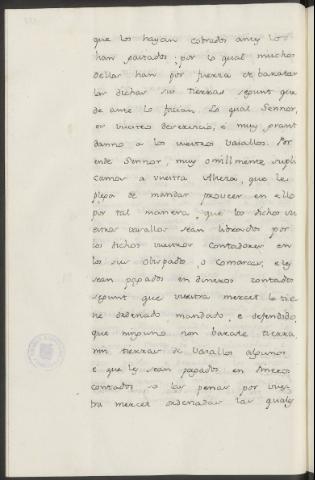 que los hayan cobrados ante los
han pasados; por lo qual muchos
dellos han por fuerza de baratar
las dichas sus tierras segunt que
de ante lo facian. Lo qual Sennor,
es vuestro deservicio, é muy grant
danno a los vuestros vasallos. Por
ende Sennor, muy omillmente supli
camos a vuestra Alteza, que le
plega de mandar proueer en ello
por tal manera, que los dichos vu
estros vasallos sean librados por
los dichos vuestros contadores en
los sus Obispados, o Comarcas, e les
sean pagados en dineros contados
segunt que vuestra mercet lo tie
ne ordenado mandado, e defendido,
que ninguno non barate tierra,
nin tierras de vasallos algunos
e que les sean pagados en dineros
contados, so las penas por vues
tra mercet ordenadas las quales